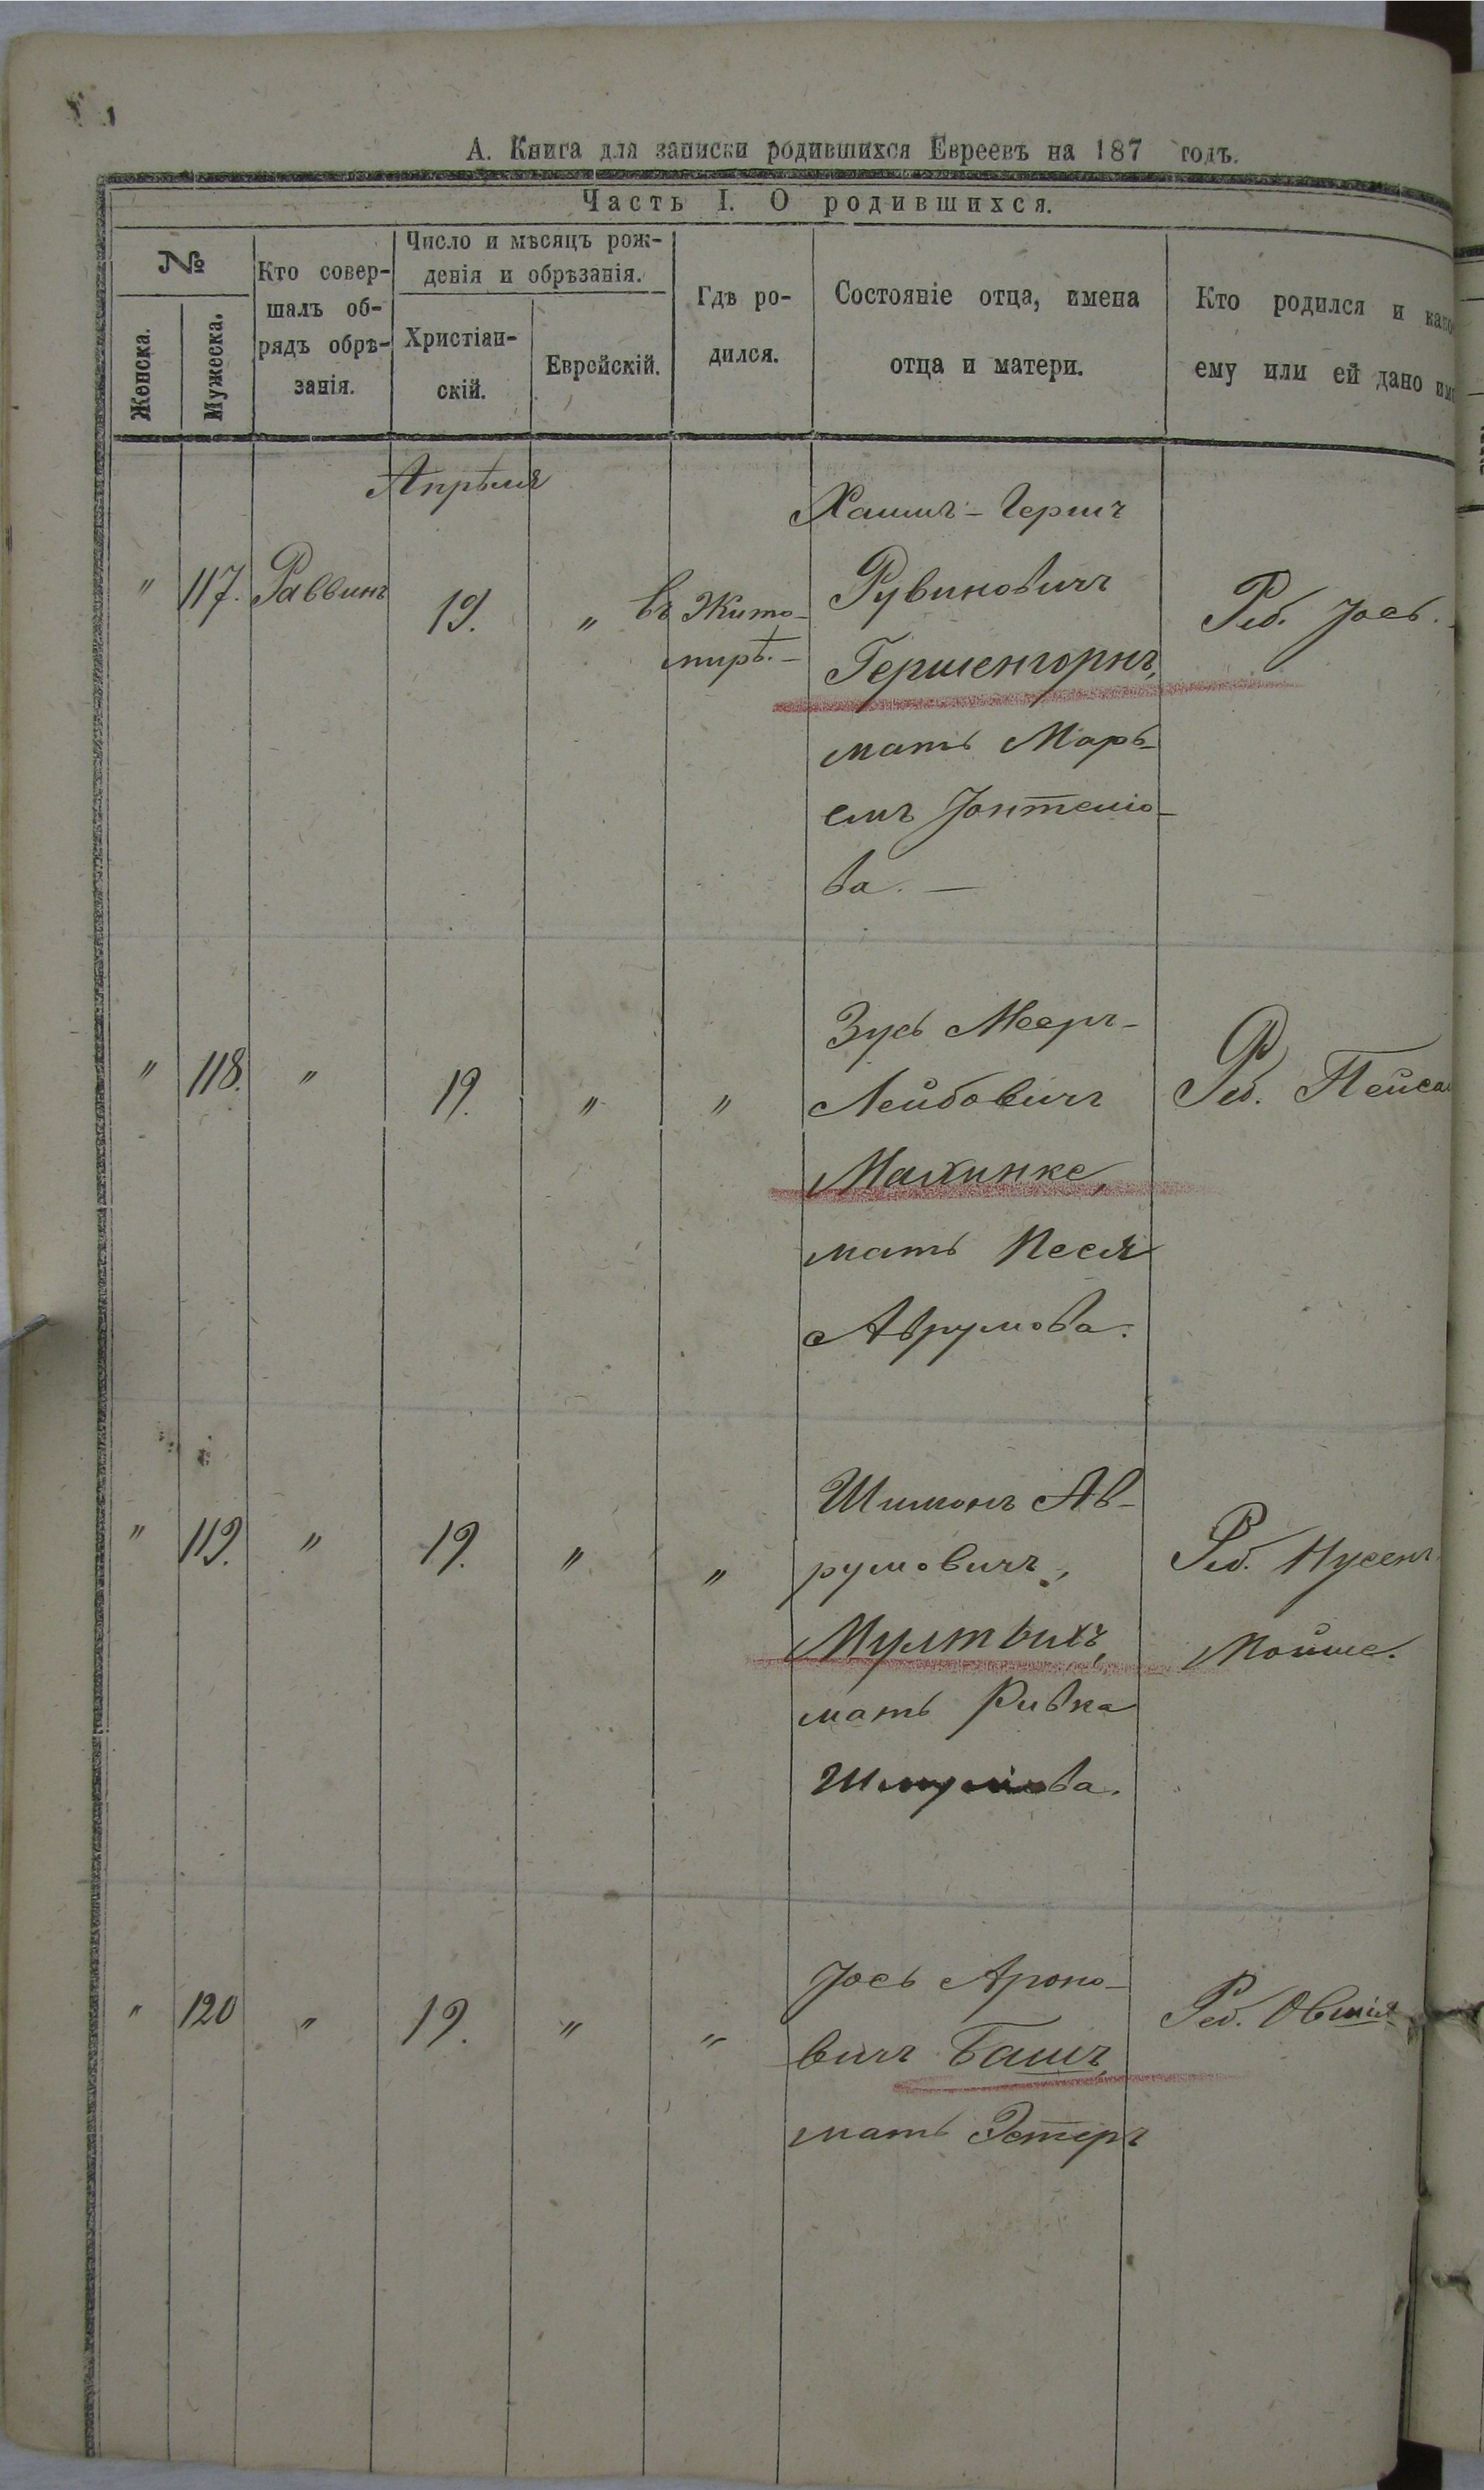 А. Книга для записки родившихся Евреевъ на 187 годъ.
Часть I. О родившихся.
№
Женска.
Мужеска.
Кто совер-
шалъ об-
рядъ обрѣ-
занія.
Число и мѣсяцъ рож-
денія и обрѣзанія.
Христіан-
скій.
Еврейскій.
Гдѣ ро-
дился.
Состояніе отца, имена
отца и матери.
Кто родился и како
ему или ей дано им
Апрѣля
" 117. Раввинъ 19. " въ Жито-
мирѣ. –
Хаимъ-Гершъ
Рувиновичъ
Гершенгорнъ,
мать Марь-
емъ Іонтелio-
ва. –
Реб. Іось.
" 118. " 19. " "
Зусь Мееръ-
Лейбовичъ
Малхинке,
мать Песя
Аврумова.
Реб. Пейса
" 119. " 19. " "
Шимонъ Ав-
румовичъ,
Мултвихъ,
мать Ривка
Шмулiова.
Реб. Нусенъ
Мойше.
" 120 " 19. " "
Іось Ароно-
вичъ Башъ,
мать Эстеръ
Реб. Овшія